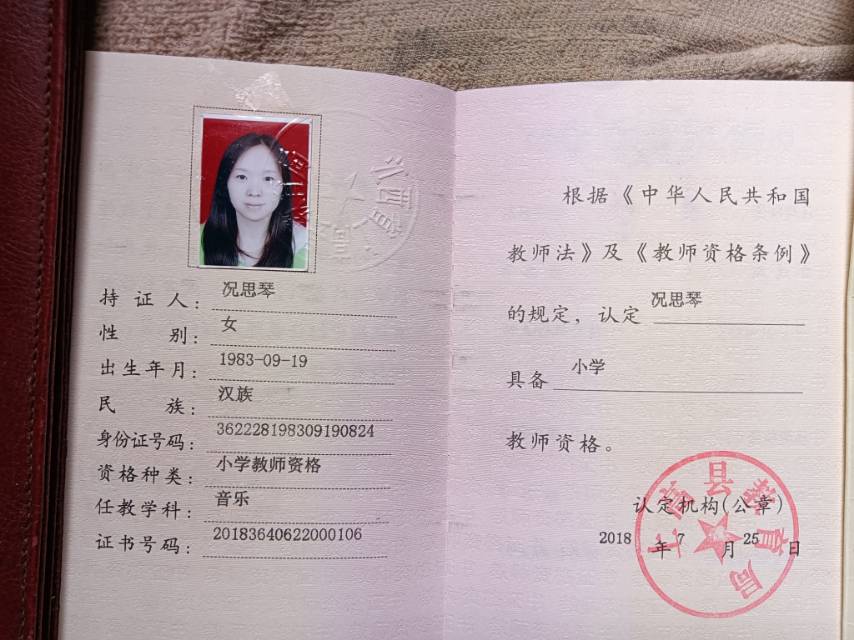 持证人：况思琴
性别：女
出生年月：1983-09-19
民族：汉族
身份证号码：362228198309190824
资格种类：小学教师资格
任教学科：音乐
证书号码：20183640622000106
根据《中华人民共和国
教师法》及《教师资格条例》
的规定，认定 况思琴
具备 小学
教师资格。
认定机构(公章)
2018 年 7 月 25 日
上高县教育局